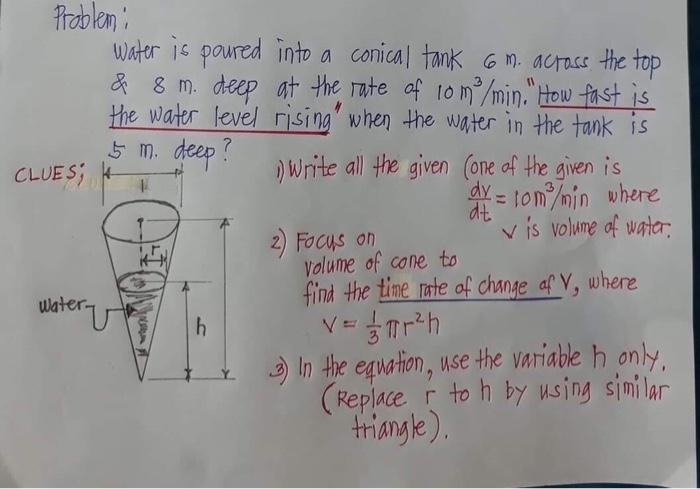 Problem:
Water is poured into a conical tank 6 m. across the top
& 8 m. deep at the rate of 10 m³/min. "How fast is
the water level rising" when the water in the tank is
5 m. deep?
CLUES;
1) Write all the given (one of the given is
dv/dt = 10m³/min where
v is volume of water.
2) Focus on
volume of cone to
find the time rate of change of V, where
V = 1/3 πr²h
3) In the equation, use the variable h only.
(Replace r to h by using similar
triangle).
r
water
h